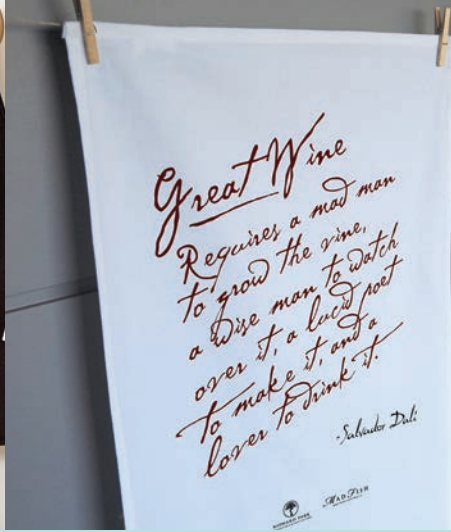 Great Wine
Requires a mad man
to grow the vine,
a wise man to watch
over it, a lucid poet
to make it, and a
lover to drink it.
-Salvador Dali
HOWARD PARK
MAD FISH